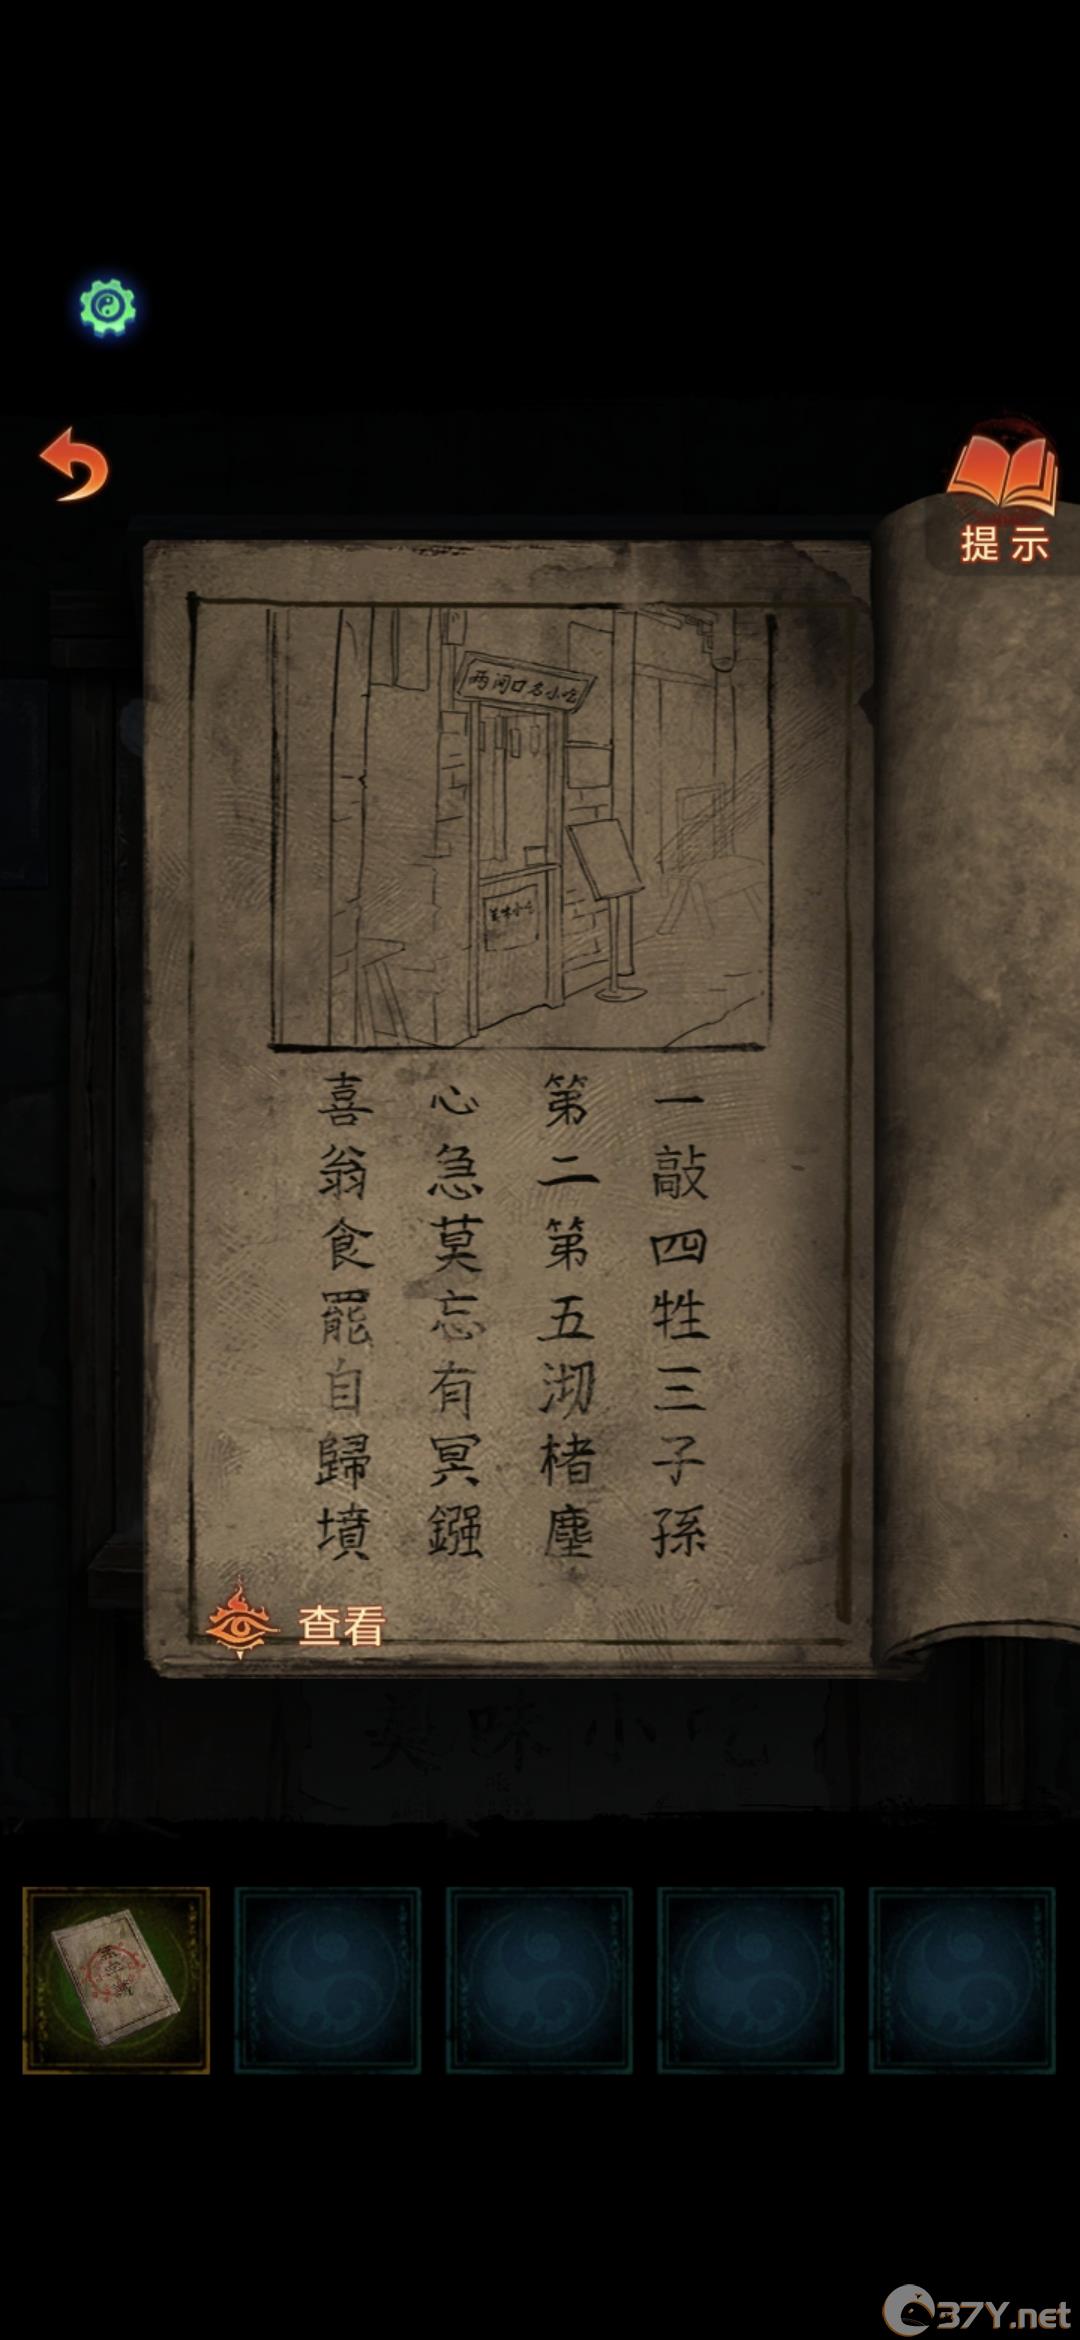 提示
两间口名小吃
美味小吃
一敲四牲三子孫
第二第五沏楮塵
心急莫忘有冥鏹
喜翁食罷自歸墳
查看
美味小吃
37Y.net